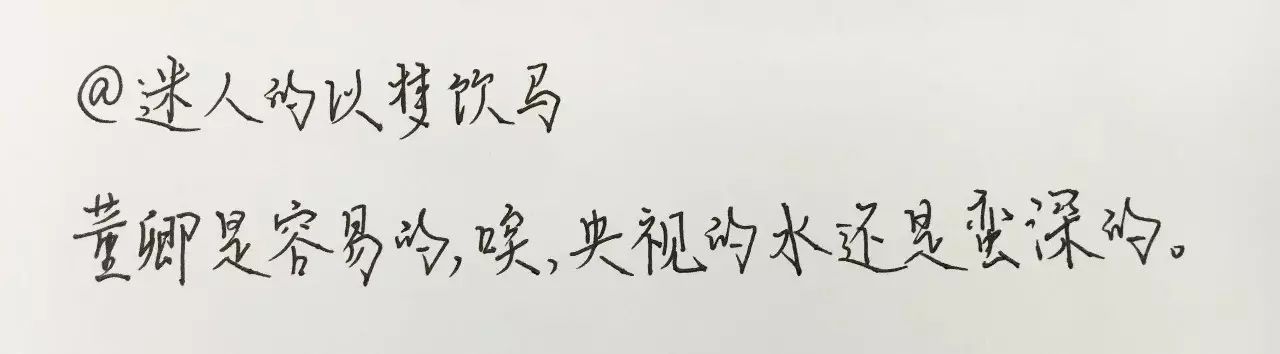 @迷人的以梦饮马
董卿是容易的,唉,央视的水还是蛮深的。